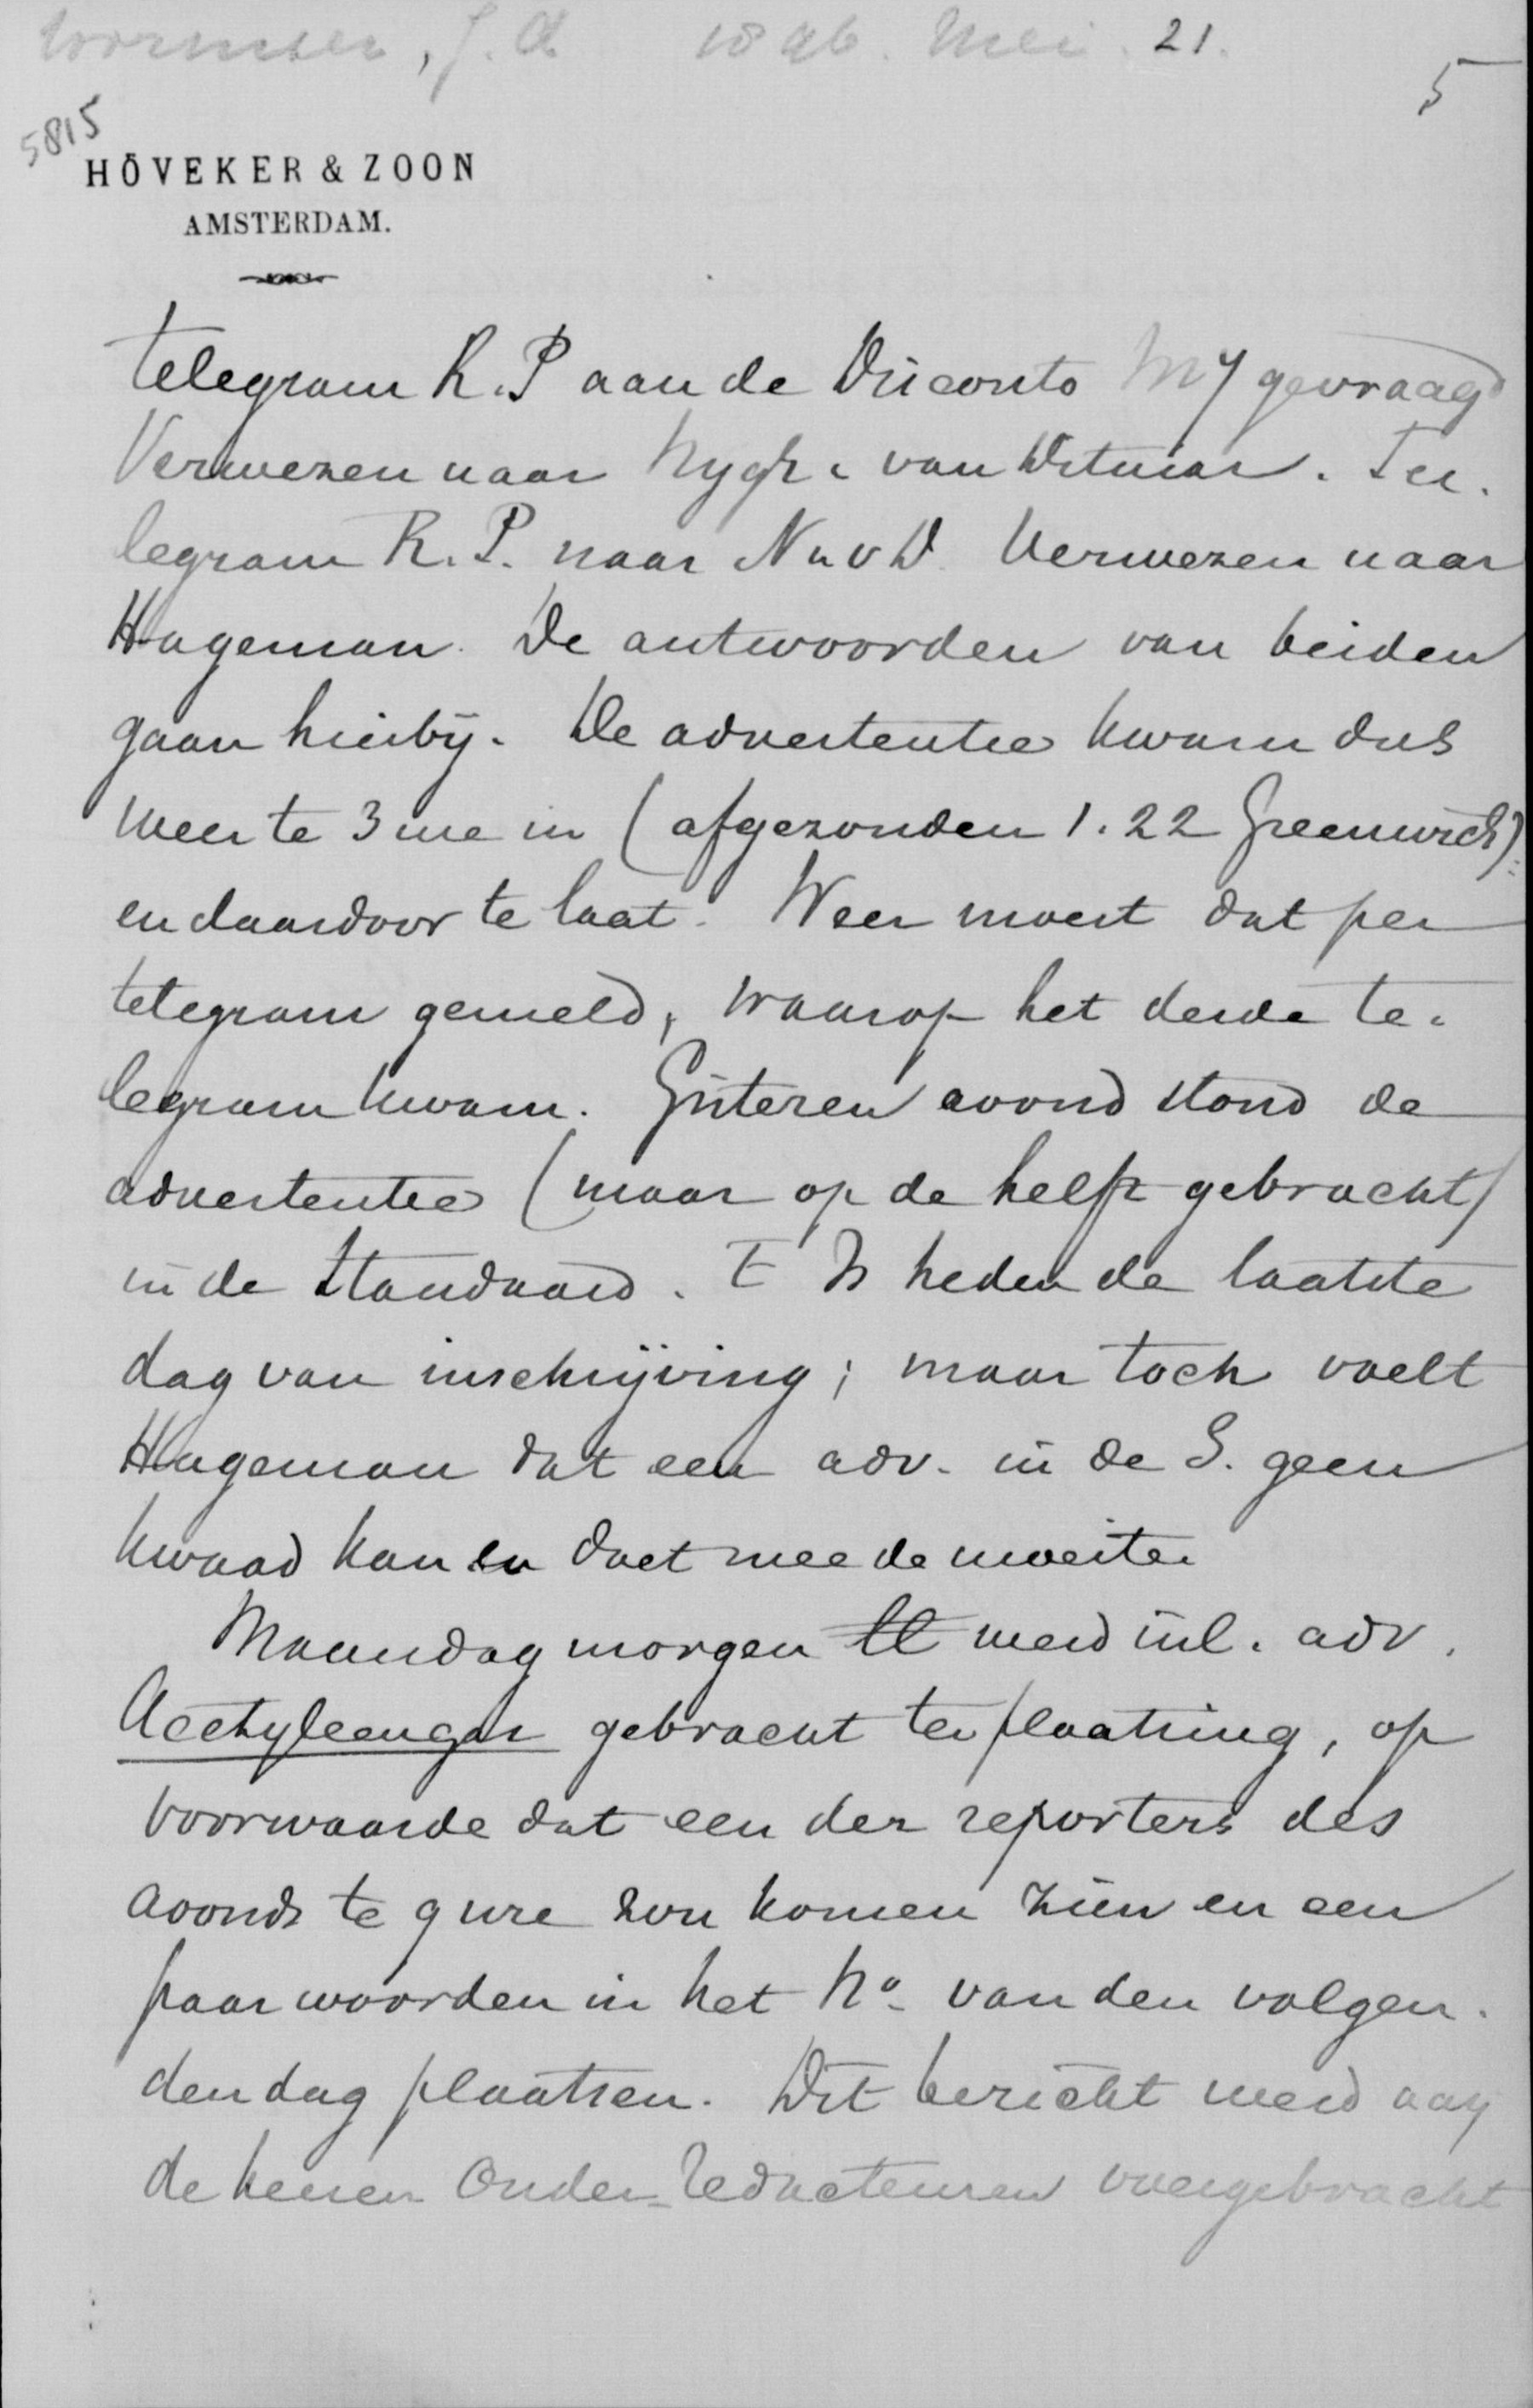 Wormser, J.A. 1896. Mei. 21.
5
5815
HÖVEKER & ZOON
AMSTERDAM.
telegram R.P aan de Disconto Mij gevraagd
Verwezen naar Nygh & van Ditmar. Te-
legram R.P. naar N & v D Verwezen naar
Hageman. De antwoorden van beiden
gaan hierbij. De advertentie kwam dus
weer te 3 ure in (afgezonden 1.22 Greenwich)
en daardoor te laat. Weer moest dat per
telegram gemeld, waarop het derde te-
legram kwam. Gisteren avond stond de
advertentie (maar op de helft gebracht)
in de Standaard. 't Is heden de laatste
dag van inschrijving; maar toch voelt
Hageman dat een adv. in de S. geen
kwaad kan en doet mee de moeite.
Maandag morgen ll werd inl. adv.
Acetyleengas gebracht ter plaatsing, op
voorwaarde dat een der reporters des
avonds te 9 ure zou komen zien en een
paar woorden in het No. van den volgen-
den dag plaatsen. Dit bericht werd aan
de heeren Onder-Redacteuren overgebracht